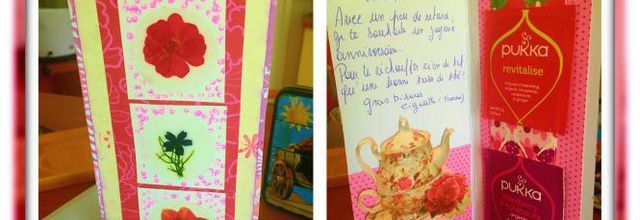 Avec un peu de retard,
je te souhaite un joyeux
anniversaire.
Pour te réchauffer rien de tel
que une bonne tasse de thé!
Gros bisous
pukka
revitalise
pukka